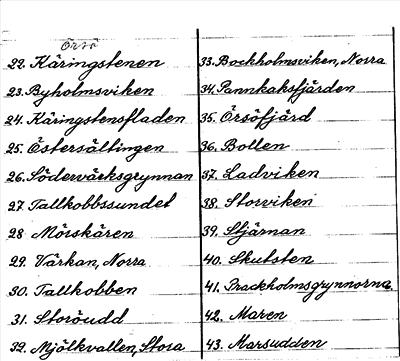 Örsö
22. Käringstenen
23. Byholmsviken
24. Käringstensfladen
25. Östersältingen
26. Söderværksgrynnan
27. Tallkobbssundet
28 Mörskären
29. Värkan, Norra
30. Tallkobben
31. Storöudd
32. Mjölkvallen, Stora
33. Bockholmsviken, Norra
34. Pannkaksfjärden
35. Örsöfjärd
36. Bollen
37. Ladviken
38. Storviken
39. Stjärnan
40. Skutsten
41. Brackholmsgrynnorna
42. Maren
43. Marsudden